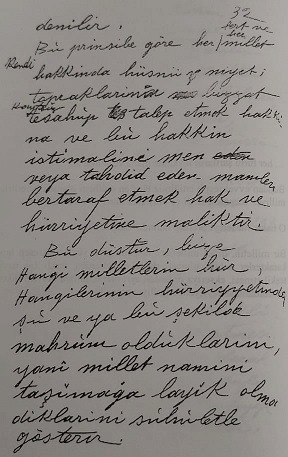 32
denilir.
fert ve
Bu prinsibe göre her / her millet
Kendi
hakkında hüsnü niyet;
topraklarına bizzat
tesahüp talep etmek hakkı
na ve bu hakkın
istimaline men eden
veya tahdid eden manileri
bertaraf etmek hak ve
hürriyetine maliktir.
Bu düstur, bize
Hangi milletlerin hür,
Hangilerinin hürriyetinden
şu ve ya bu şekilde
mahrum olduklarını,
yani millet namını
taşımağa layik olma
dıklarını sühuletle
gösterir.